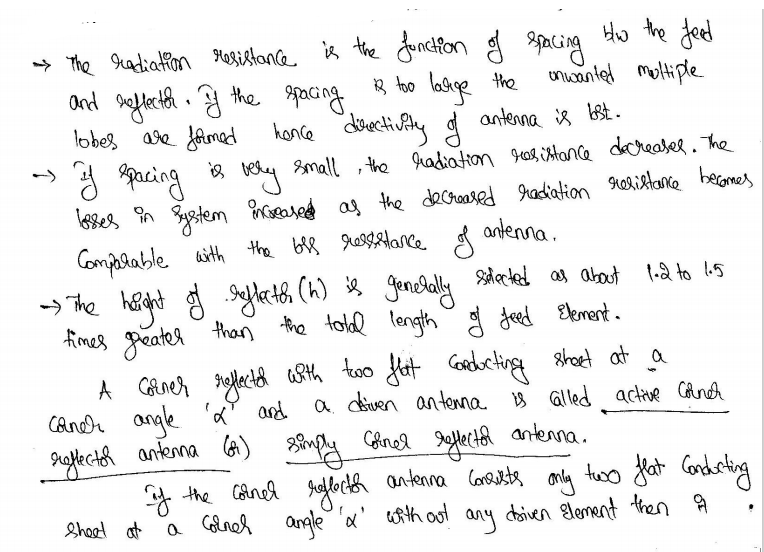 → The radiation resistance is the function of spacing b/w the feed
and reflector. If the spacing is too large the unwanted multiple
lobes are formed hence directivity of antenna is lost.
→ If spacing is very small, the radiation resistance decreases. The
losses in system increased as the decreased radiation resistance becomes
Comparable with the loss resistance of antenna.
→ The height of reflector (h) is generally selected as about 1.2 to 1.5
times greater than the total length of feed element.
A corner reflector with two flat conducting sheet at a
corner angle 'α' and a driven antenna is called active corner
reflector antenna (or) simply corner reflector antenna.
If the corner reflector antenna consists only two flat conducting
sheet at a corner angle 'α' with out any driven element then it